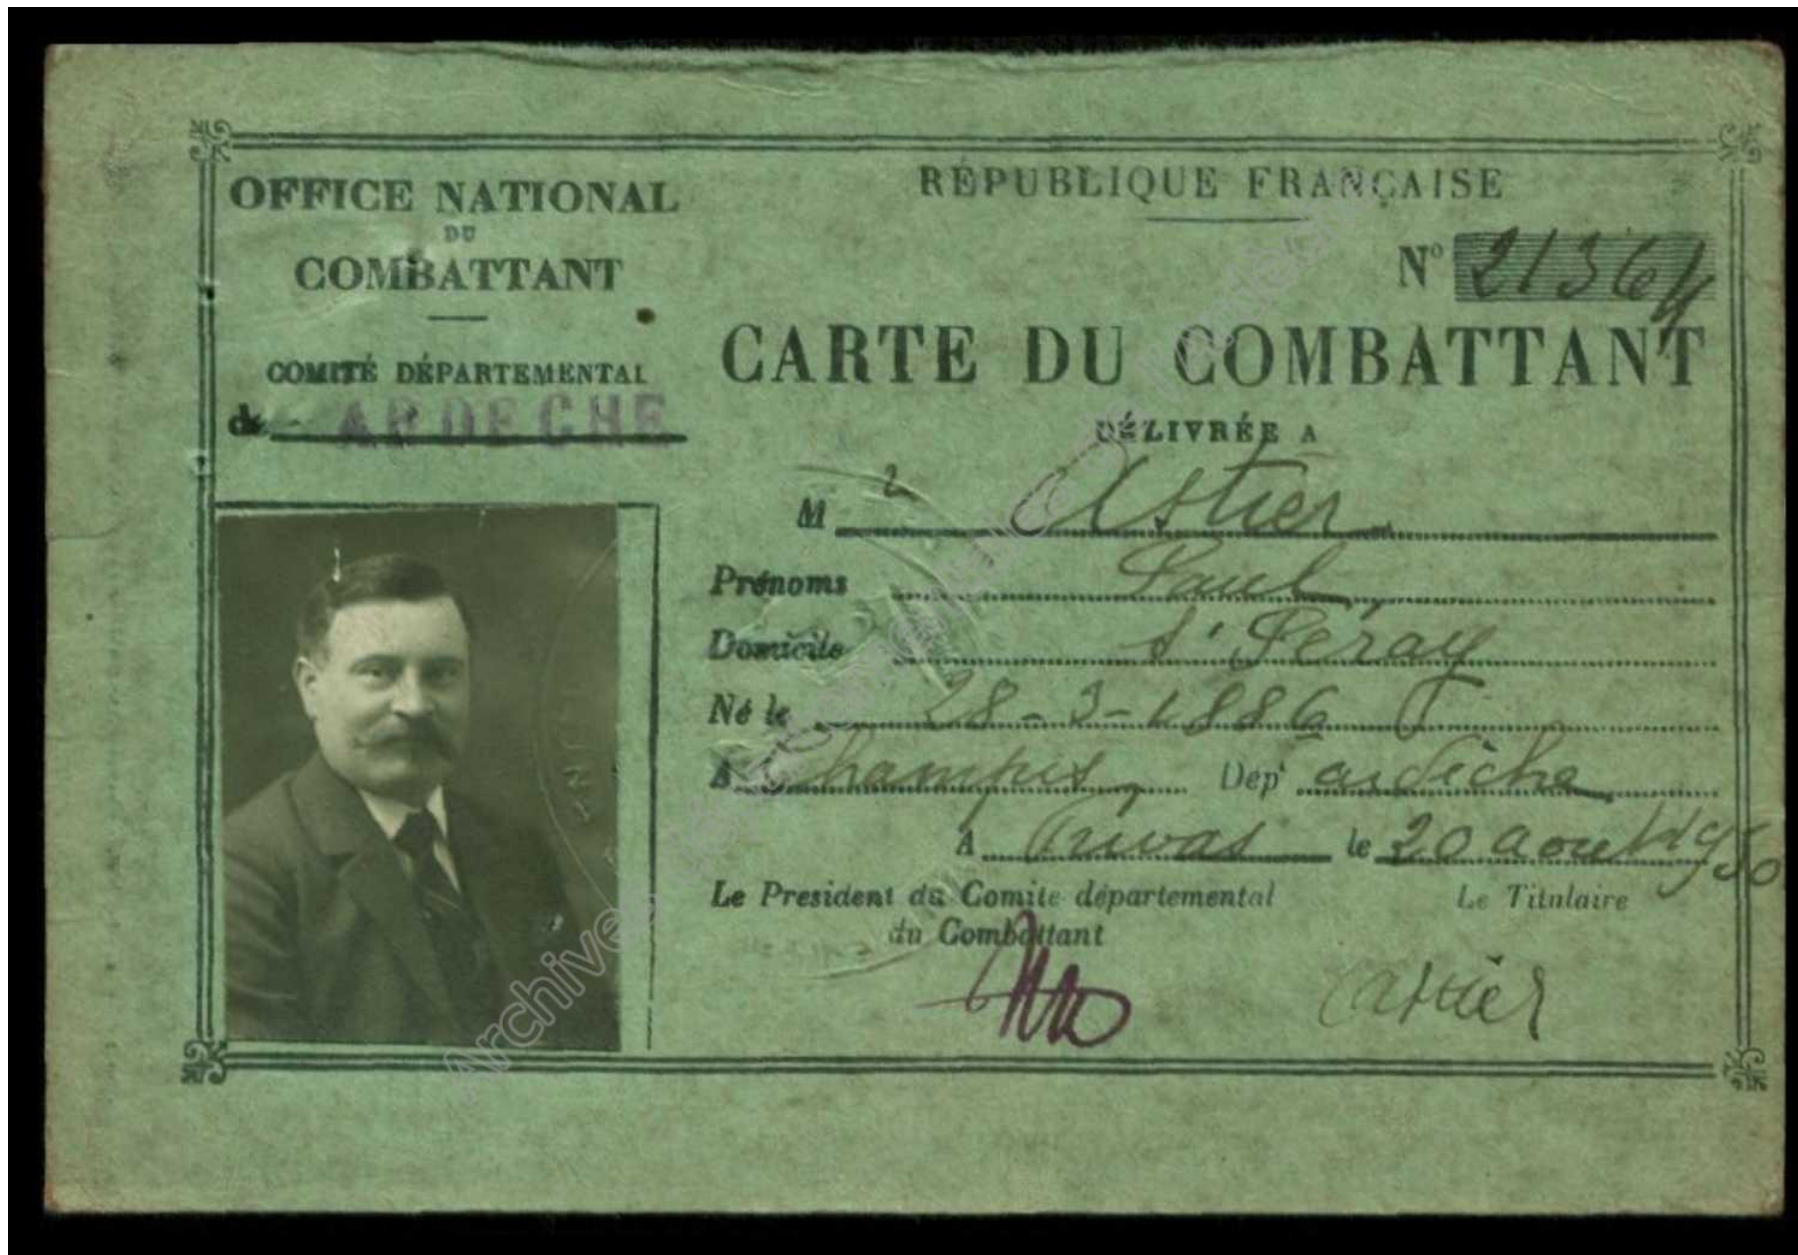 OFFICE NATIONAL
DU
COMBATTANT
COMITÉ DÉPARTEMENTAL
de ARDECHE
RÉPUBLIQUE FRANÇAISE
N° 21364
CARTE DU COMBATTANT
DÉLIVRÉE A
M r Astier
Prénoms Paul
Domicile St Péray
Né le 28-3-1886
A Champis Dépt ardèche
A Privas le 20 aout 1930
Le President du Comite départemental
du Combattant
Le Titulaire
astier
Archives départementales